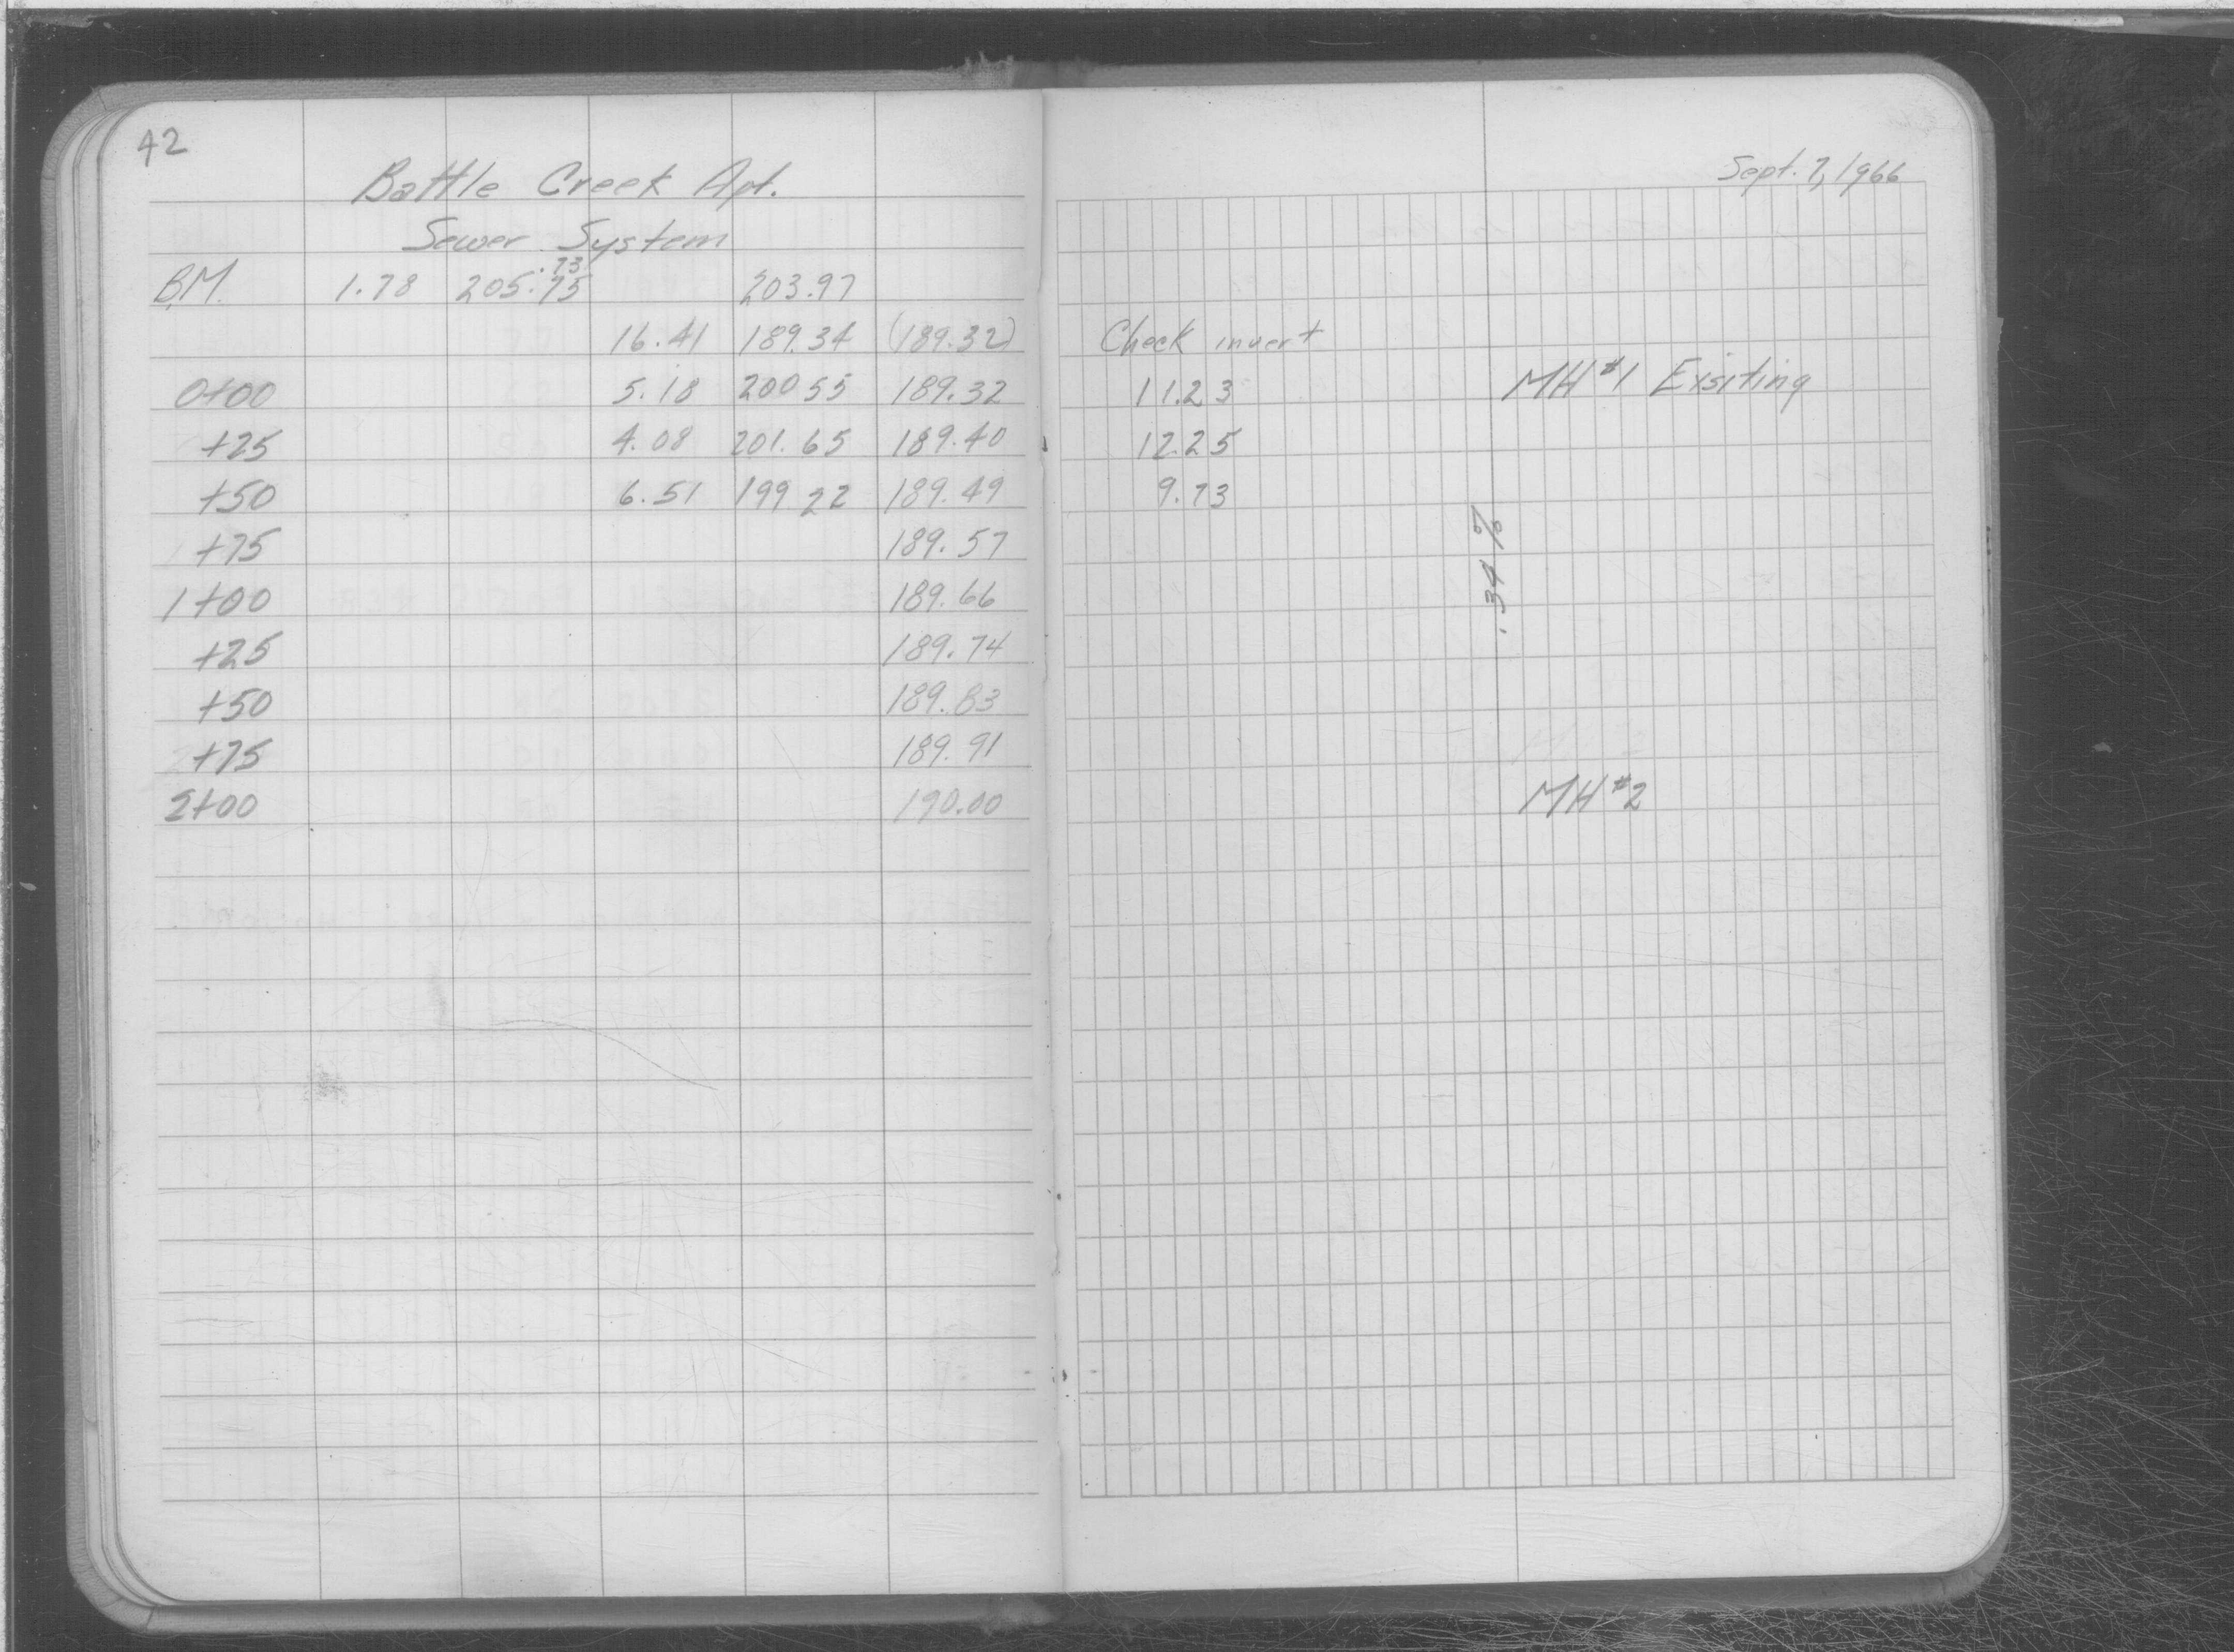 42
Battle Creek Apt.
Sewer System
.73
B.M. 1.78 205.75 203.97
16.41 189.34 (189.32)
0+00 5.18 200 55 189.32
+25 4.08 201.65 189.40
+50 6.51 199 22 189.49
+75 189.57
1+00 189.66
+25 189.74
+50 189.83
+75 189.91
2+00 190.00
Sept. 7, 1966
Check invert
11.23 MH #1 Exisiting
12.25
9.73
.34 %
MH #2